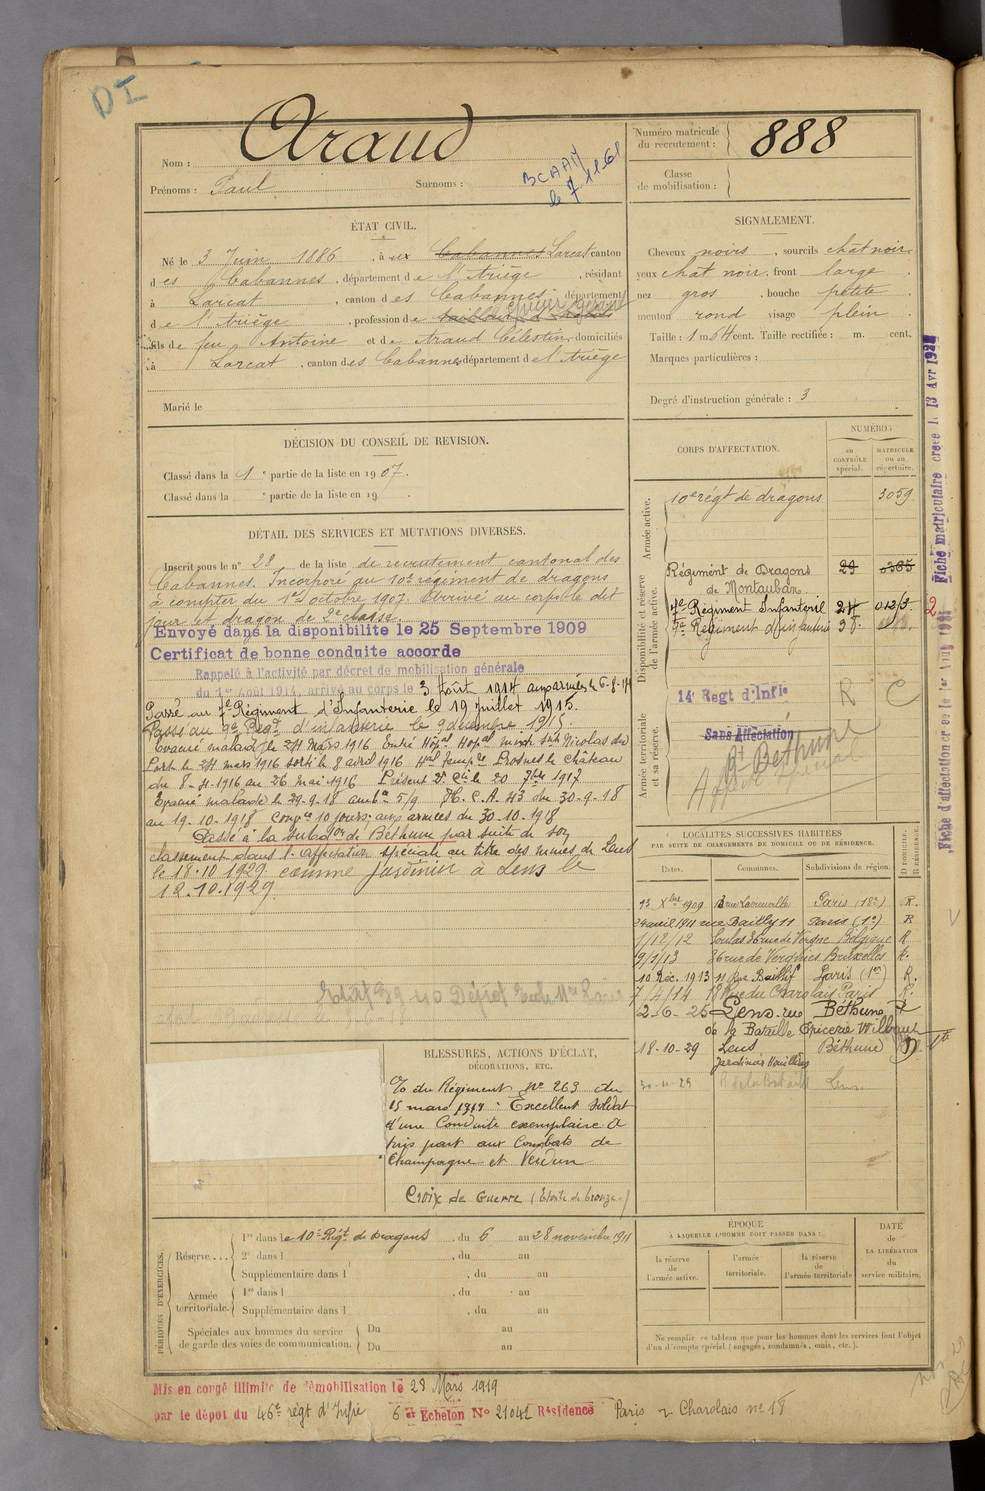 DI
Nom : Araud
Prénoms : Paul Surnoms :
BCAAM
le 7 11 61
Numéro matricule du recrutement : 888
Classe de mobilisation :
ÉTAT CIVIL.
Né le 3 Juin 1886, à Cabannes Larcat canton
des Cabannes, département de l'Ariège, résidant
à Larcat, canton des Cabannes, département
de l'Ariège, profession de
fils de feu Antoine et de Araud Célestine, domiciliés
à Larcat, canton des Cabannes département de l'Ariège
Marié le
SIGNALEMENT.
Cheveux noirs, sourcils chat noir
yeux chat noir, front large
nez gros, bouche petite
menton rond visage plein
Taille : 1 m 54 cent. Taille rectifiée : m. cent.
Marques particulières :
Degré d'instruction générale : 3
DÉCISION DU CONSEIL DE REVISION.
Classé dans la 1e partie de la liste en 1907.
Classé dans la e partie de la liste en 19
DÉTAIL DES SERVICES ET MUTATIONS DIVERSES.
Inscrit sous le n° 28 de la liste de recrutement cantonal des
Cabannes. Incorporé au 10e régiment de dragons
à compter du 1er octobre 1907. Arrivé au corps le dit
jour et dragon de 2e classe
Envoyé dans la disponibilité le 25 Septembre 1909
Certificat de bonne conduite accordé
Rappelé à l'activité par décret de mobilisation générale
du 1er Août 1914, arrivé au corps le 3 Août 1914 aux armées le 6-8-14
Passé au 7e Régiment d'Infanterie le 19 juillet 1915.
Passé au 9e Régt d'infanterie le 9 décembre 1915.
Evacué malade le 24 mars 1916 Entré Hopal Hopal St Nicolas du
Port le 24 mars 1916 sorti le 8 avril 1916 Hal Temp Prosnes le Château
du 8-4-1916 au 26 mai 1916 Présent Cie le 20 7bre 1917
Evacué malade le 29-9-18 ambce 5/9 H.C.A. 43 du 30-9-18
au 19-10-1918 Conv 10 jours; aux armées du 30-10-1918
Passé à la Subdon de Béthune par suite de son
classement dans l'affectation spéciale au titre des mines de Lens
le 18.10.1929 comme Jardinier à Lens le
18.10.1929
CORPS D'AFFECTATION.
NUMÉROS
AU CONTRÔLE spécial.
MATRICULE ou au répertoire.
Armée active.
10e régt de dragons 3059
Disponibilité et réserve de l'armée active.
Régiment de Dragons de Montauban 29
7e Régiment Infanterie
9e Régiment d'infanterie
Armée territoriale et sa réserve.
14e Regt d'Infie R C
Sans Affectation
Bt Béthune
Affecté spécial
LOCALITÉS SUCCESSIVES HABITÉES
PAR SUITE DE CHANGEMENTS DE DOMICILE OU DE RÉSIDENCE.
Dates. Communes. Subdivisions de région. DOMICILE. RÉSIDENCE.
13 Xbre 1909 Paris (18e) R.
24 avril 1911 rue Bailly 11 Paris (1er) R
1/12/12 36 rue de Vergne Belgique R
9/1/13 36 rue de Vergnies Bruxelles R.
10 Déc. 1913 11 Rue Baillif Paris (1er) R.
7/4/14 18 Rue du Charolais Paris R.
2-6-25 Lens rue Béthune R
de la Bataille Epicerie
18-10-29 Lens Béthune
Jardinier Houillères
R de la Bataille Lens
BLESSURES, ACTIONS D'ÉCLAT,
DÉCORATIONS, ETC.
O/ du Régiment N° 263 du
15 mars 1917 : Excellent soldat
d'une Conduite exemplaire a
pris part aux Combats de
Champagne et Verdun
Croix de Guerre (Etoile de bronze)
PÉRIODES D'EXERCICES.
Réserve... 1re dans le 10e Régt de dragons, du 6 au 28 novembre 1911
2e dans l , du au
Supplémentaire dans l , du au
Armée territoriale. 1re dans l , du au
Supplémentaire dans l , du au
Spéciales aux hommes du service de garde des voies de communication. Du au
Du au
ÉPOQUE
À LAQUELLE L'HOMME DOIT PASSER DANS :
la réserve de l'armée active.
l'armée territoriale.
la réserve de l'armée territoriale
DATE de LA LIBÉRATION du service militaire.
Ne remplir ce tableau que pour les hommes dont les services font l'objet
d'un décompte spécial (engagés, condamnés, omis, etc.).
Mis en congé illimité de démobilisation le 28 Mars 1919
par le dépôt du 46e régt d'Infie 6e Echelon No 21041 Résidence Paris r. Charolais n° 18